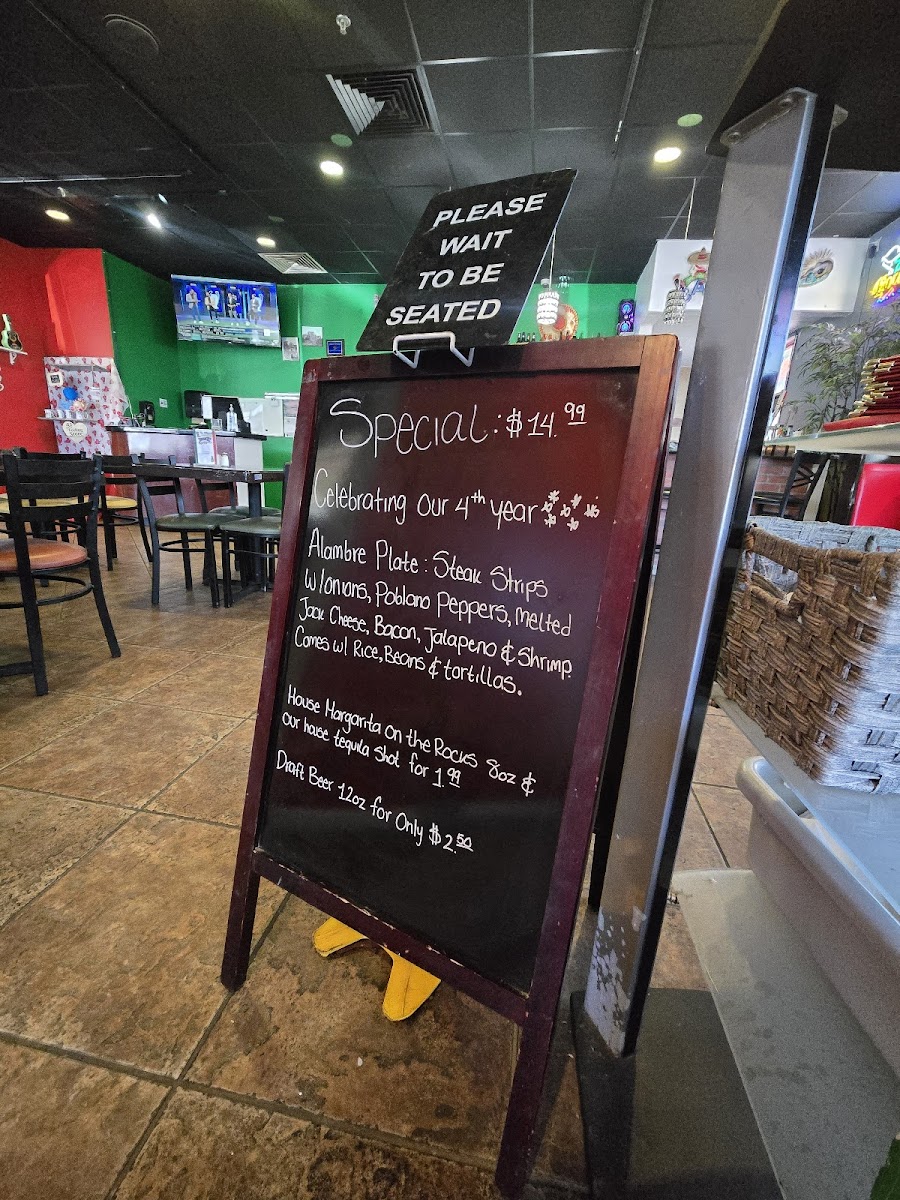 PLEASE
WAIT
TO BE
SEATED
Special: $14.99
Celebrating Our 4th year
Alambre Plate: Steak Strips
w/onions, Poblano Peppers, melted
Jack Cheese, Bacon, Jalapeno & Shrimp.
Comes w/ Rice, Beans & tortillas.
House Margarita on the Rocks 8oz &
our house tequila shot for 1.99
Draft Beer 12oz for Only $2.50